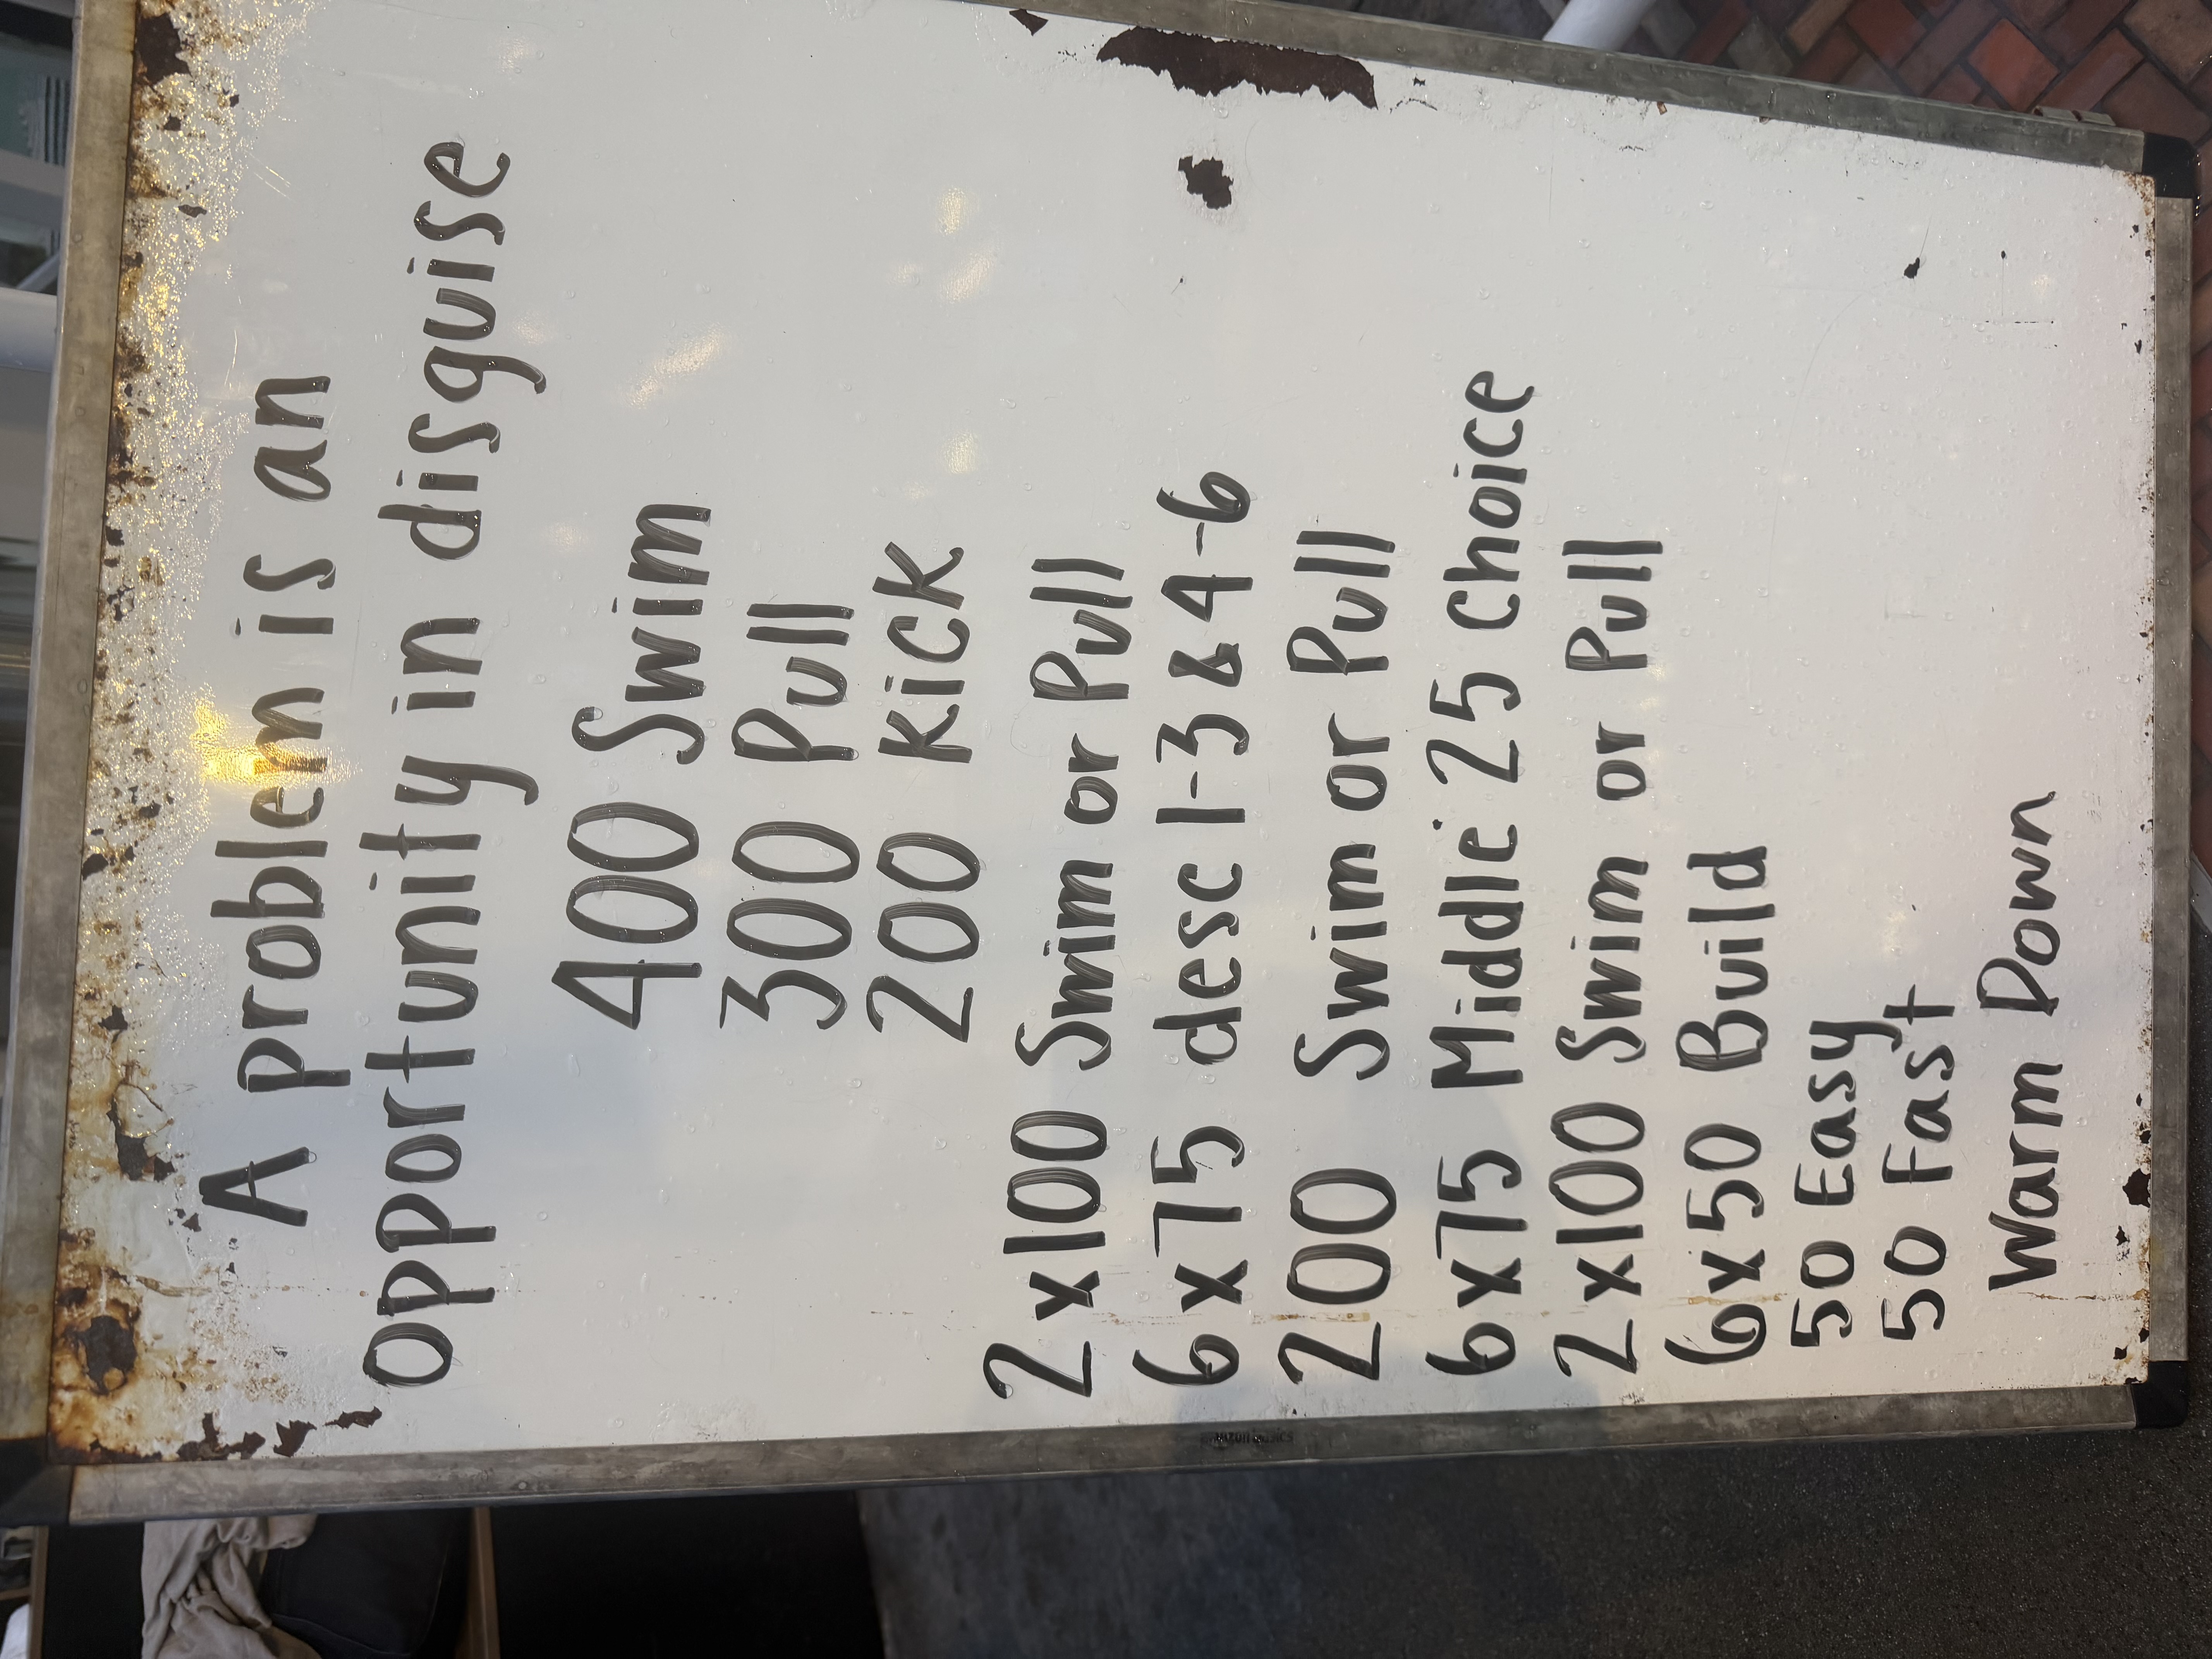 A problem is an
opportunity in disguise
400 Swim
300 Pull
200 Kick
2x100 Swim or Pull
6x75 desc 1-3 & 4-6
200 Swim or Pull
6x75 Middle 25 Choice
2x100 Swim or Pull
6x50 Build
50 Easy
50 Fast
Warm Down